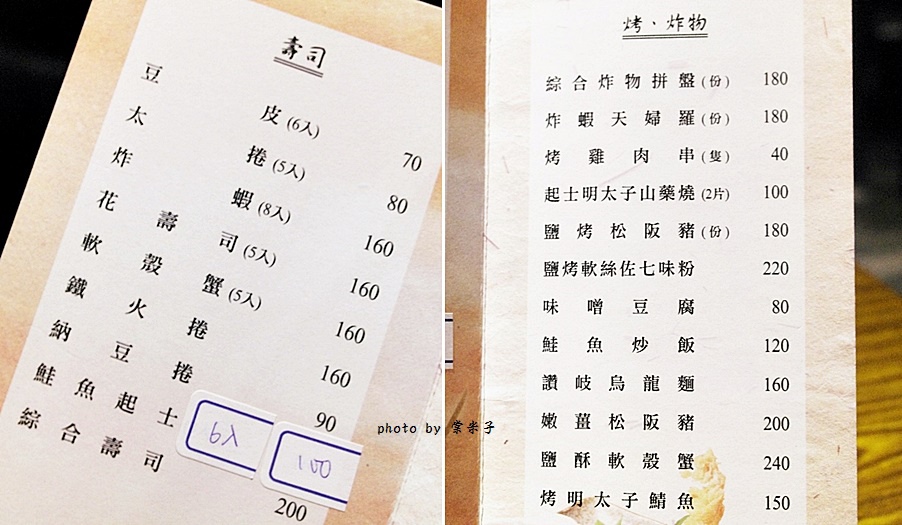 壽司
豆皮(6入) 70
太捲(5入) 80
炸蝦(8入) 160
花壽司(5入) 160
軟殼蟹(5入) 160
鐵火捲 160
納豆捲 90
鮭魚起士 6入 100
綜合壽司 200
烤、炸物
綜合炸物拼盤(份) 180
炸蝦天婦羅(份) 180
烤雞肉串(隻) 40
起士明太子山藥燒(2片) 100
鹽烤松阪豬(份) 180
鹽烤軟絲佐七味粉 220
味噌豆腐 80
鮭魚炒飯 120
讚岐烏龍麵 160
嫩薑松阪豬 200
鹽酥軟殼蟹 240
烤明太子鯖魚 150
photo by 棠米子